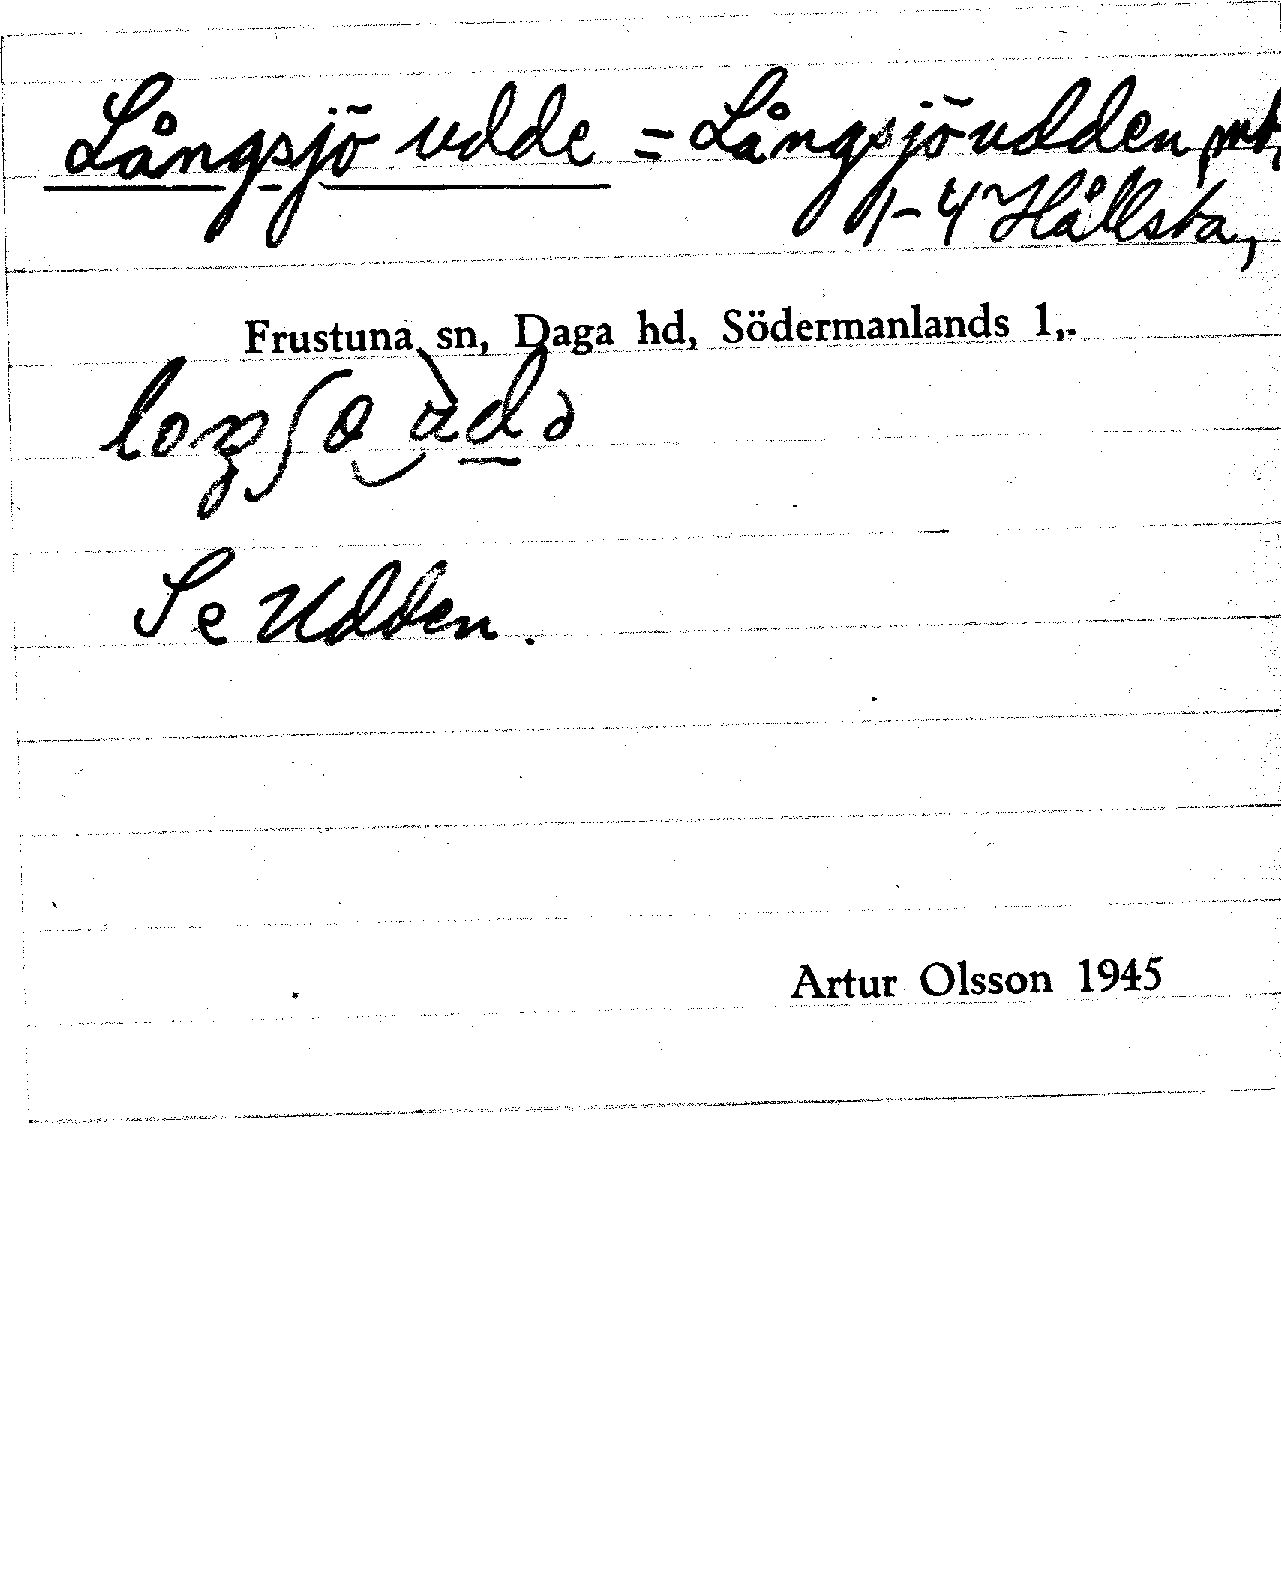 Långsjö udde = Långsjöudden
1-4 Hållsta,
Frustuna sn, Daga hd, Södermanlands l,.
Se Udden.
Artur Olsson 1945